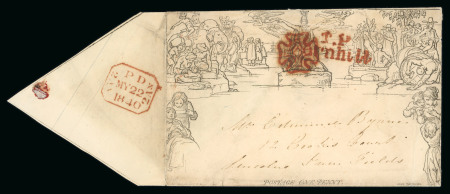 T.P
Cornhill
PD
MY 22
1840
Mr Edmund Byrne
Lincolns Inn Fields
POSTAGE ONE PENNY.